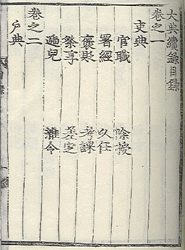 大典續錄目錄
卷之一
吏典
官職 除授
署經 久任
褒貶 考課
祭享 差定
遞兒 雜令
卷之二
戶典